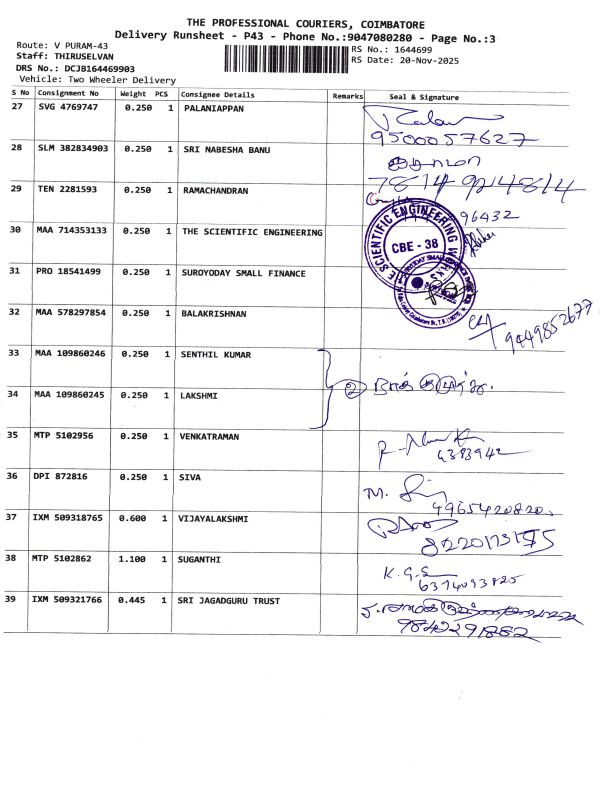 THE PROFESSIONAL COURIERS, COIMBATORE
Delivery Runsheet - P43 - Phone No.:9047080280 - Page No.:3
Route: V PURAM-43
Staff: THIRUSELVAN
DRS No.: DCJB164469903
Vehicle: Two Wheeler Delivery
RS No.: 1644699
RS Date: 20-Nov-2025
S No Consignment No Weight PCS Consignee Details Remarks Seal & Signature
27 SVG 4769747 0.250 1 PALANIAPPAN
9500057627
28 SLM 382834903 0.250 1 SRI NABESHA BANU
7814924814
29 TEN 2281593 0.250 1 RAMACHANDRAN
96432
30 MAA 714353133 0.250 1 THE SCIENTIFIC ENGINEERING
THE SCIENTIFIC ENGINEERING WORKS
CBE - 38
31 PRO 18541499 0.250 1 SUROYODAY SMALL FINANCE
32 MAA 578297854 0.250 1 BALAKRISHNAN
9449852677
33 MAA 109860246 0.250 1 SENTHIL KUMAR
34 MAA 109860245 0.250 1 LAKSHMI
35 MTP 5102956 0.250 1 VENKATRAMAN
6383942
36 DPI 872816 0.250 1 SIVA
9965420820
37 IXM 509318765 0.600 1 VIJAYALAKSHMI
38 MTP 5102862 1.100 1 SUGANTHI
K.G.S
6374093825
39 IXM 509321766 0.445 1 SRI JAGADGURU TRUST
9842291882